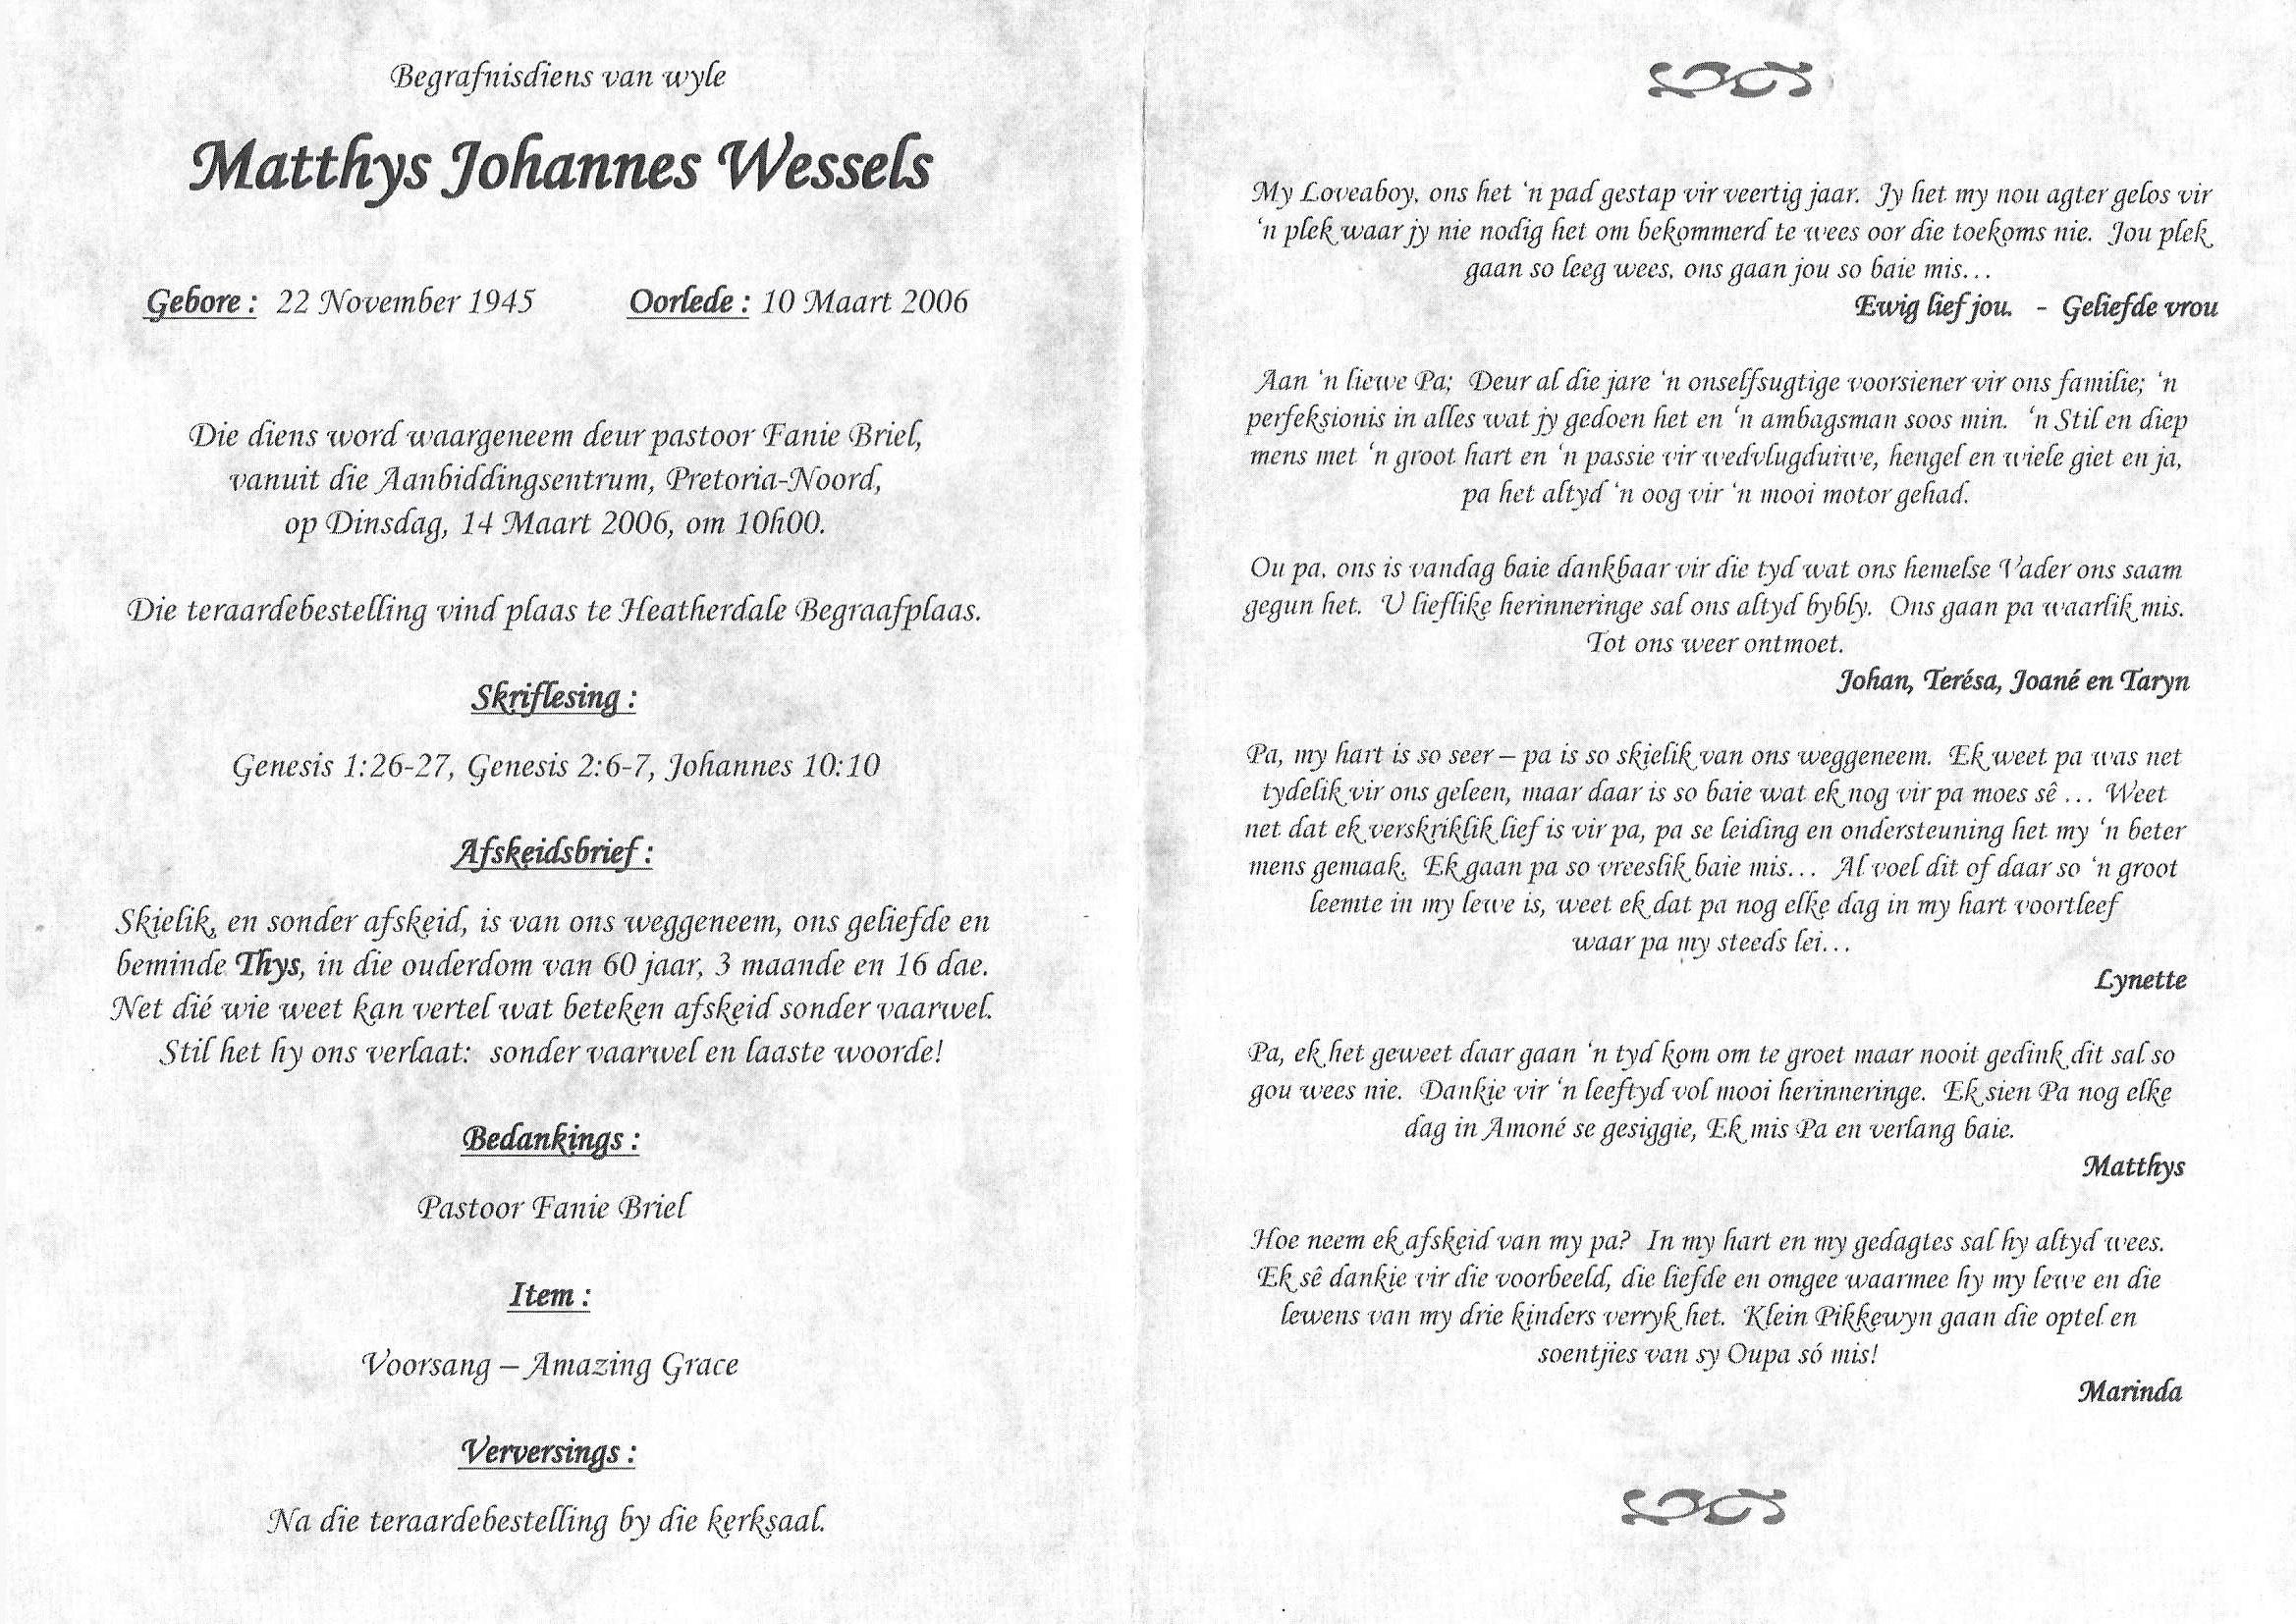 Begrafnisdiens van wyle
Matthys Johannes Wessels
Gebore : 22 November 1945 Oorlede : 10 Maart 2006
Die diens word waargeneem deur pastoor Fanie Briel,
vanuit die Aanbiddingsentrum, Pretoria-Noord,
op Dinsdag, 14 Maart 2006, om 10h00.
Die teraardebestelling vind plaas te Heatherdale Begraafplaas.
Skriflesing :
Genesis 1:26-27, Genesis 2:6-7, Johannes 10:10
Afskeidsbrief :
Skielik, en sonder afskeid, is van ons weggeneem, ons geliefde en
beminde Thys, in die ouderdom van 60 jaar, 3 maande en 16 dae.
Net dié wie weet kan vertel wat beteken afskeid sonder vaarwel.
Stil het hy ons verlaat: sonder vaarwel en laaste woorde!
Bedankings :
Pastoor Fanie Briel
Item :
Voorsang – Amazing Grace
Verversings :
Na die teraardebestelling by die kerksaal.
My Loveaboy, ons het ‘n pad gestap vir veertig jaar. Jy het my nou agter gelos vir
‘n plek waar jy nie nodig het om bekommerd te wees oor die toekoms nie. Jou plek
gaan so leeg wees, ons gaan jou so baie mis…
Ewig lief jou. - Geliefde vrou
Aan ‘n liewe Pa; Deur al die jare ‘n onselfsugtige voorsiener vir ons familie; ‘n
perfeksionis in alles wat jy gedoen het en ‘n ambagsman soos min. ‘n Stil en diep
mens met ‘n groot hart en ‘n passie vir wedvlugduiwe, hengel en wiele giet en ja,
pa het altyd ‘n oog vir ‘n mooi motor gehad.
Ou pa, ons is vandag baie dankbaar vir die tyd wat ons hemelse Vader ons saam
gegun het. U lieflike herinneringe sal ons altyd bybly. Ons gaan pa waarlik mis.
Tot ons weer ontmoet.
Johan, Terésa, Joané en Taryn
Pa, my hart is so seer – pa is so skielik van ons weggeneem. Ek weet pa was net
tydelik vir ons geleen, maar daar is so baie wat ek nog vir pa moes sê … Weet
net dat ek verskriklik lief is vir pa, pa se leiding en ondersteuning het my ‘n beter
mens gemaak. Ek gaan pa so vreeslik baie mis… Al voel dit of daar so ‘n groot
leemte in my lewe is, weet ek dat pa nog elke dag in my hart voortleef
waar pa my steeds lei…
Lynette
Pa, ek het geweet daar gaan ‘n tyd kom om te groet maar nooit gedink dit sal so
gou wees nie. Dankie vir ‘n leeftyd vol mooi herinneringe. Ek sien Pa nog elke
dag in Amoné se gesiggie, Ek mis Pa en verlang baie.
Matthys
Hoe neem ek afskeid van my pa? In my hart en my gedagtes sal hy altyd wees.
Ek sê dankie vir die voorbeeld, die liefde en omgee waarmee hy my lewe en die
lewens van my drie kinders verryk het. Klein Pikkewyn gaan die optel en
soentjies van sy Oupa só mis!
Marinda